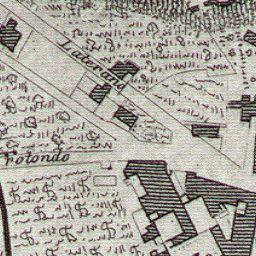 Laterano
Rotondo